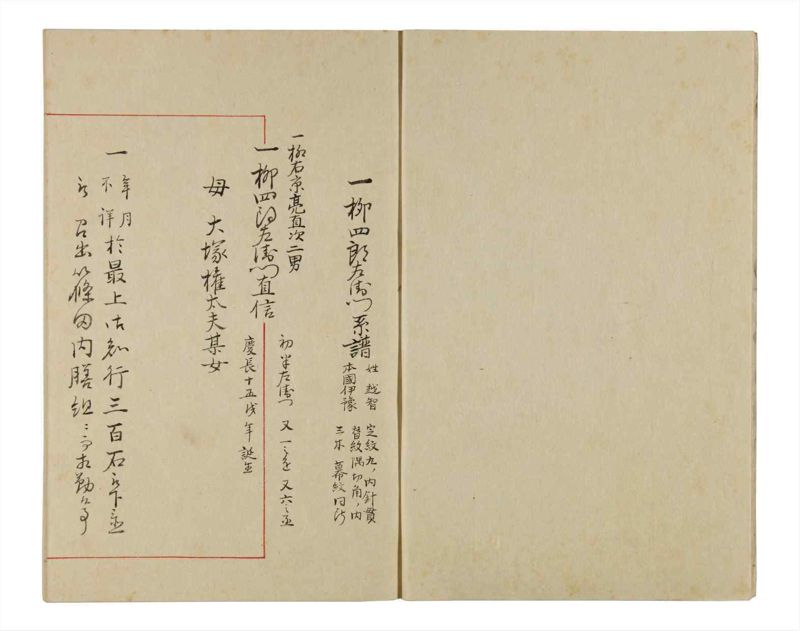 一柳四郎左衛門系譜
姓 越智
本國伊豫
定紋丸ノ内針貫
替紋隅切角ノ内
三木 幕紋同断
一柳右京亮直次二男
一柳四郎左衛門直信
初半左衛門 又 又六之丞
慶長十五戌年誕生
母 大塚權太夫某女
一 年月不詳於最上御知行三百石被下置
被 召出篠田内膳組ニ而相勤候事